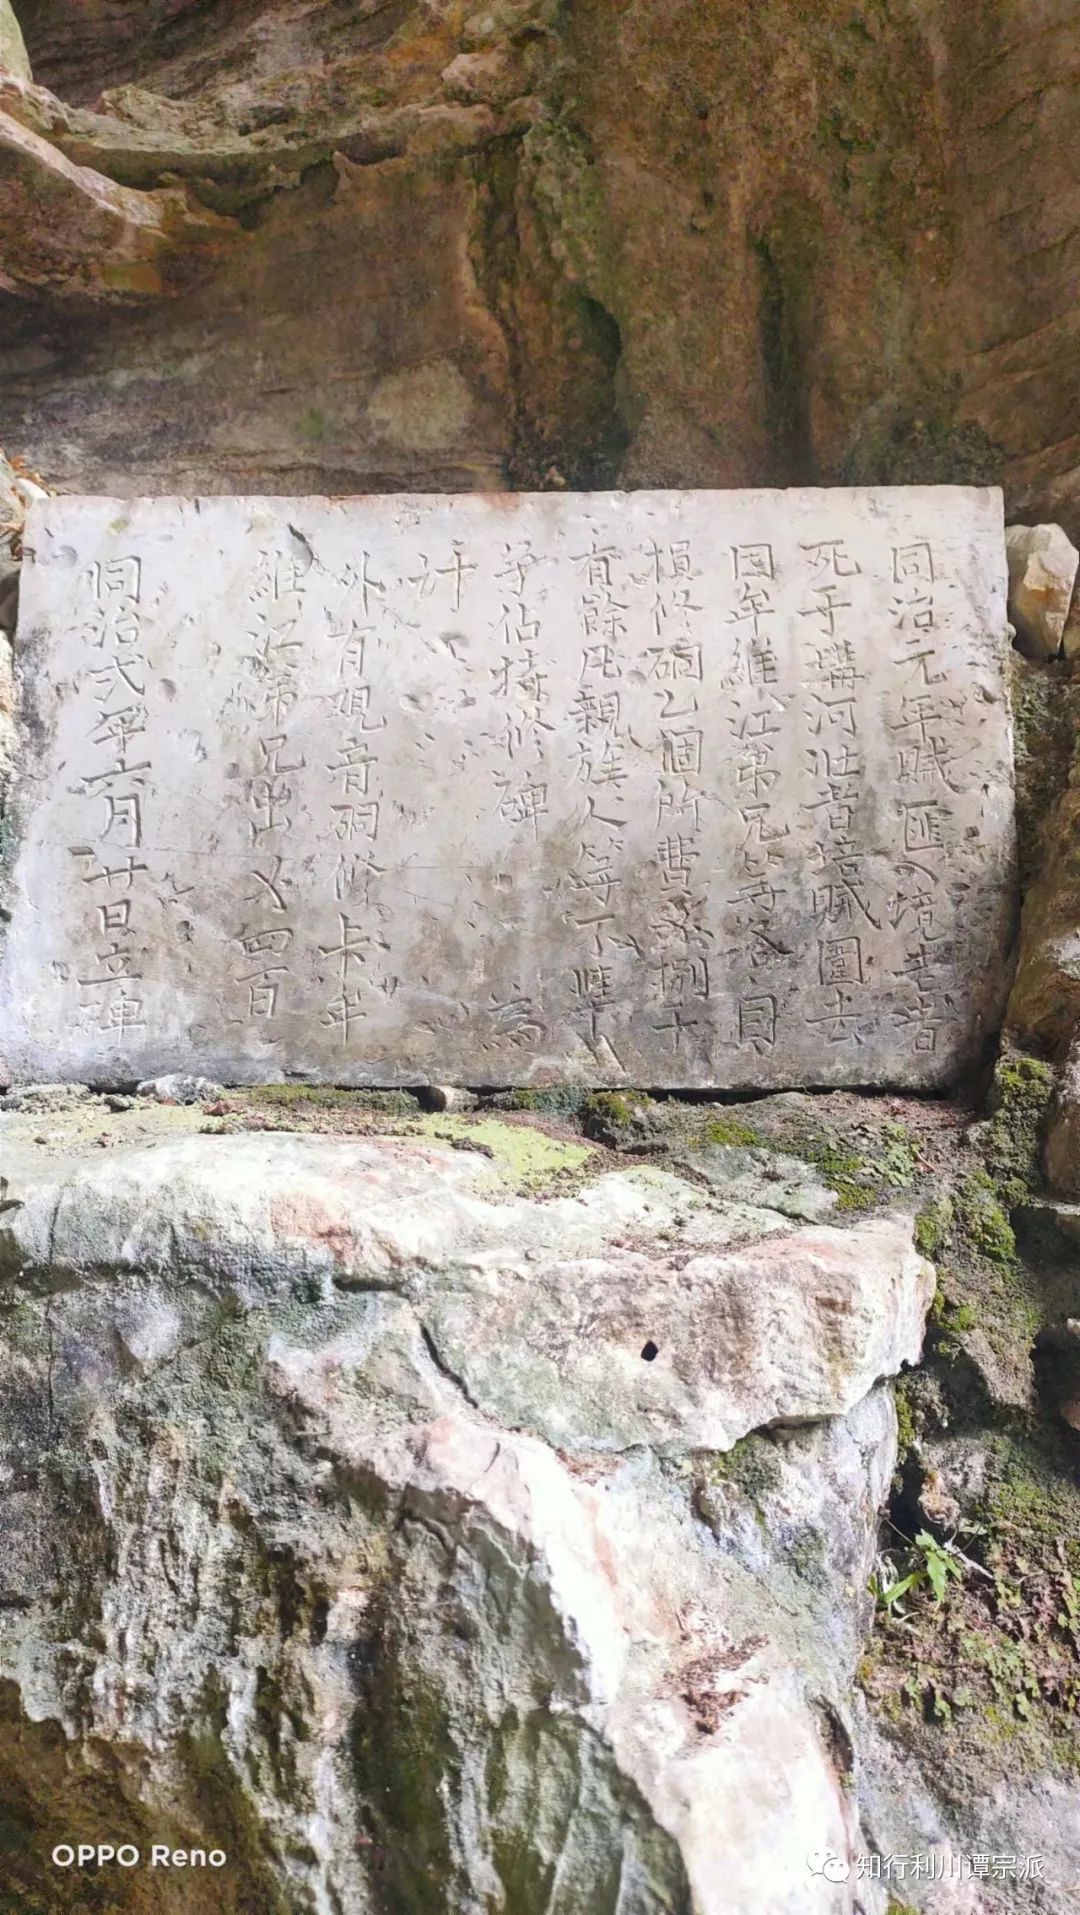 同治元年賊匪入境老者
死于溝河壮者培賊圍去
因牟維江弟兄等各自
損修硐乙個所費錢捌十
有餘凡親族人等不惟
争佔特修碑為
計
外有观音硐修卡牟
維江弟兄出乂四百
同治弍年六月廿日立碑
OPPO Reno
知行利川谭宗派